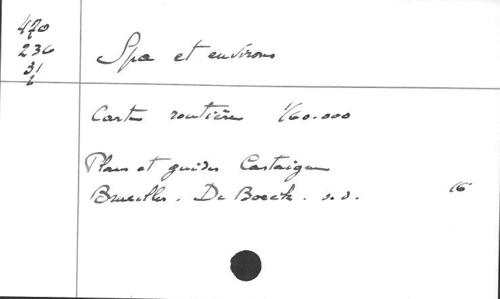 470
236
31
2
Spa et environs
Carte routière 1/60.000
Plans et guides Castaigne
Bruxelles. De Boeck. s.d. 16°